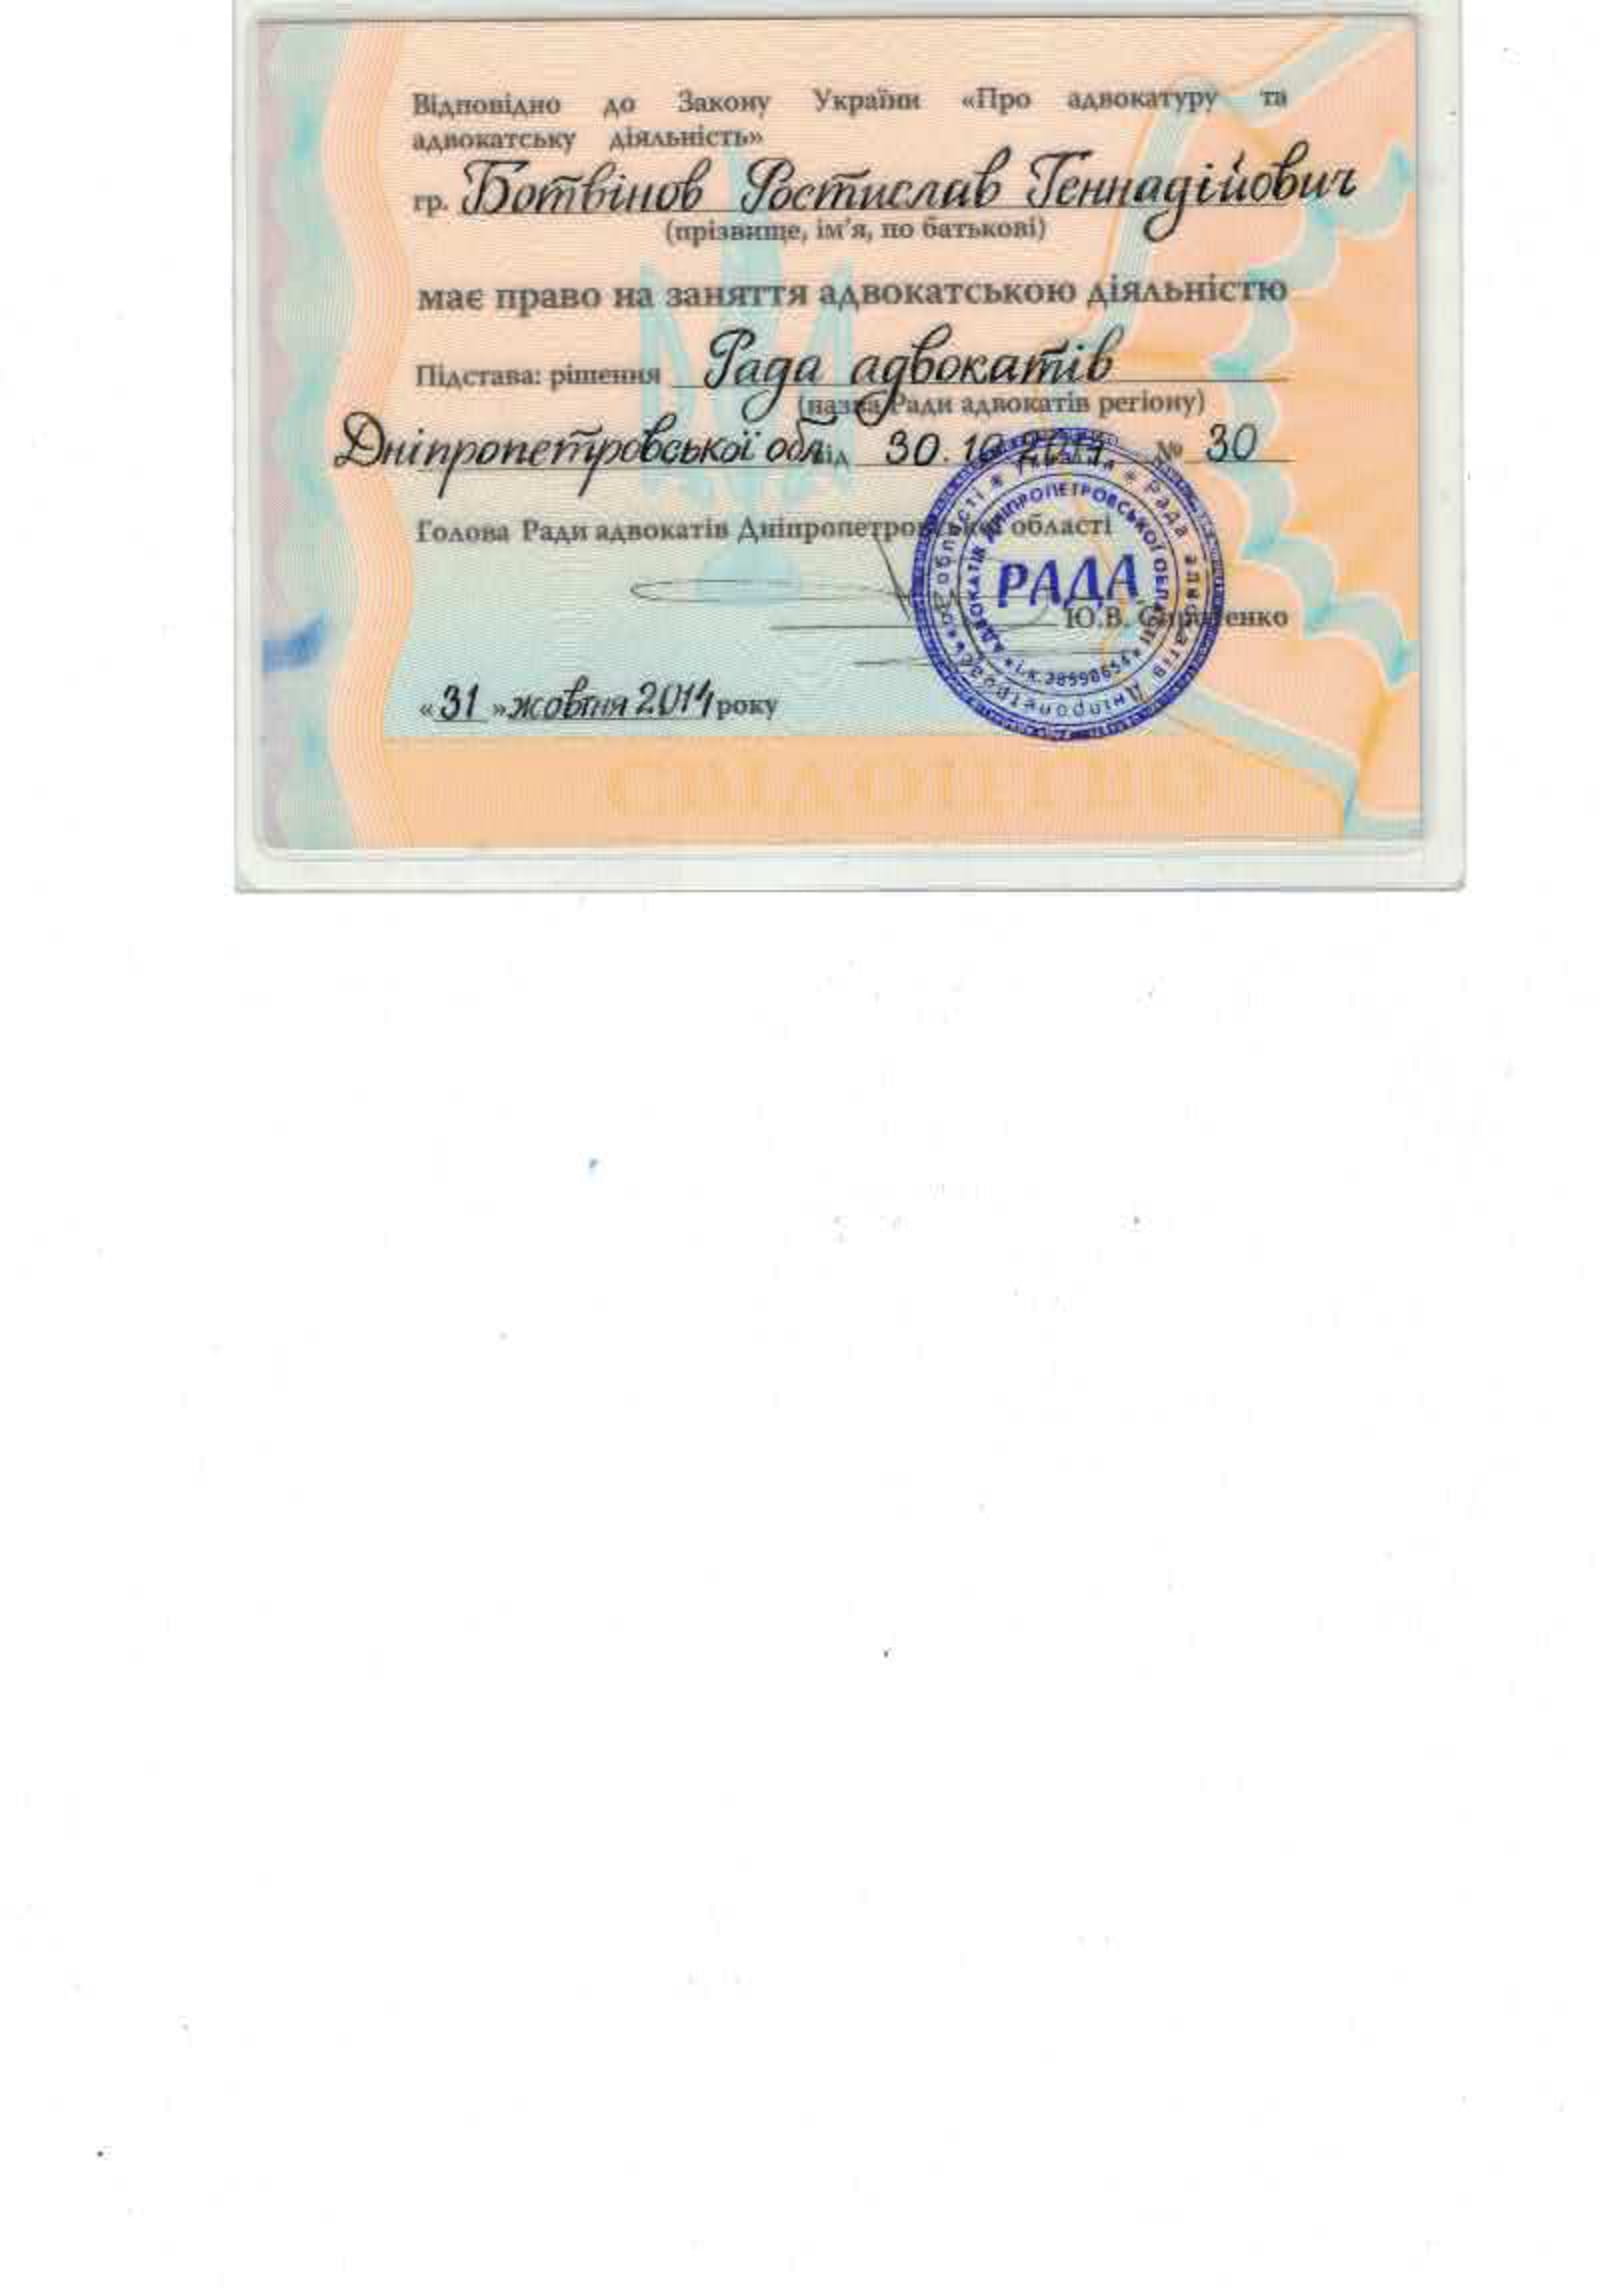 Відповідно до Закону України «Про адвокатуру та
адвокатську діяльність»
гр. Ботвінов Ростислав Геннадійович
(прізвище, ім'я, по батькові)
має право на заняття адвокатською діяльністю
Підстава: рішення Рада адвокатів
(назва Ради адвокатів регіону)
Дніпропетровської обл. від 30.10.2014 № 30
Голова Ради адвокатів Дніпропетровської області
РАДА
АДВОКАТІВ ДНІПРОПЕТРОВСЬКОЇ ОБЛАСТІ
Україна * Рада адвокатів Дніпропетровської області *
Ю.В.
«31» жовтня 2014 року